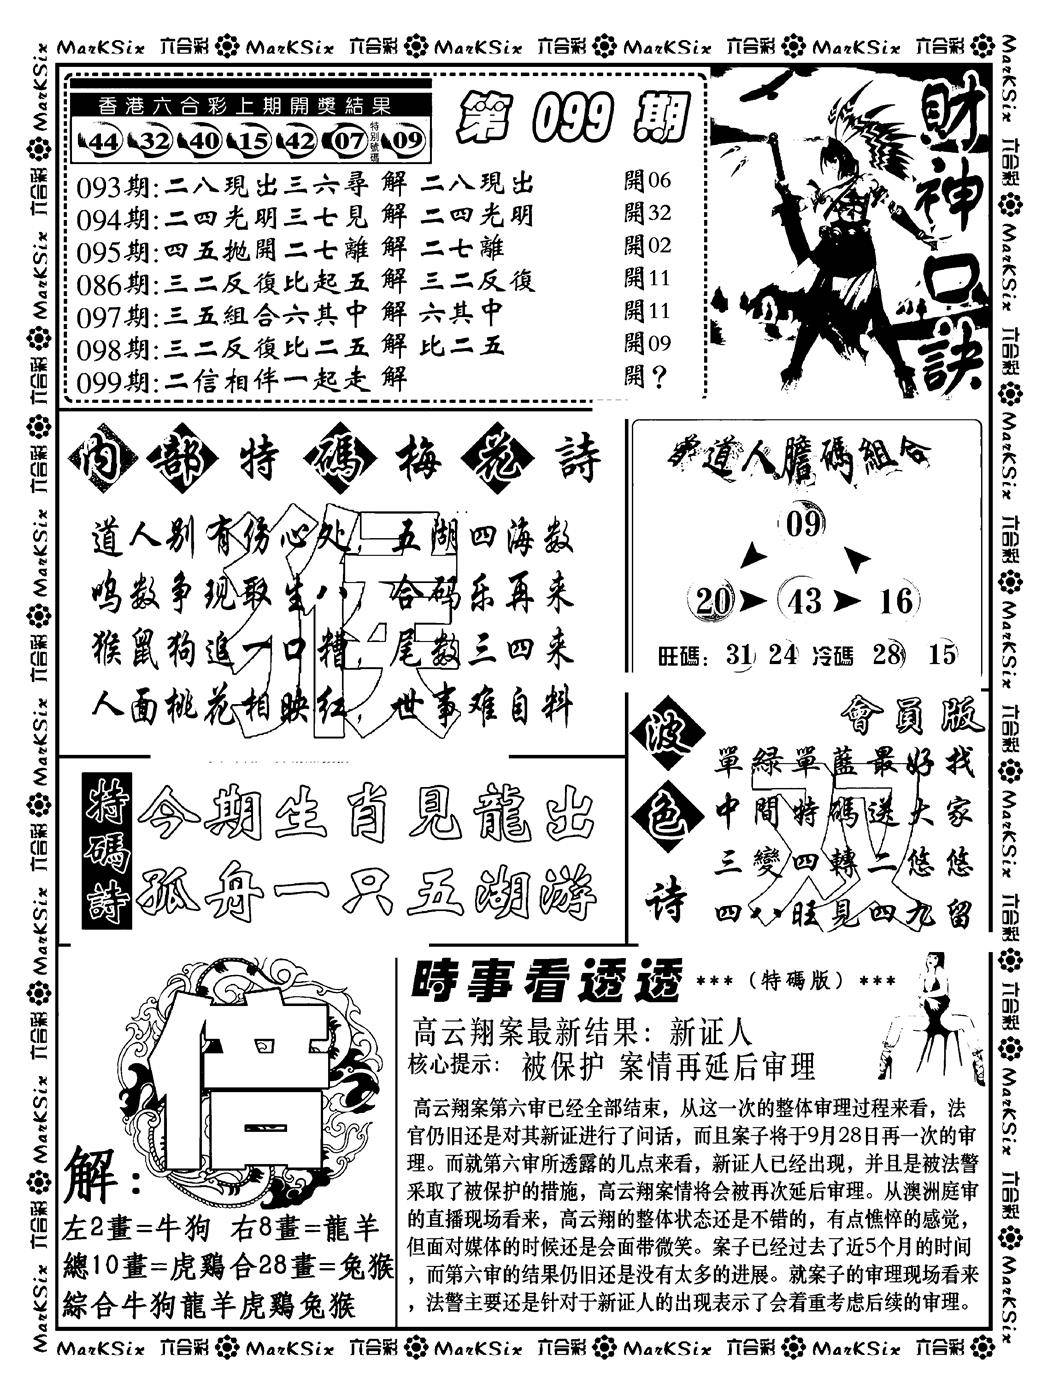 MarKSix 六合彩 MarKSix 六合彩 MarKSix 六合彩 MarKSix 六合彩 MarKSix 六合彩
香港六合彩上期開獎結果
44 32 40 15 42 07 特別號碼 09
第 099 期
093期:二八現出三六尋 解 二八現出 開06
094期:二四光明三七見 解 二四光明 開32
095期:四五拋開二七離 解 二七離 開02
086期:三二反復比起五 解 三二反復 開11
097期:三五組合六其中 解 六其中 開11
098期:三二反復比二五 解 比二五 開09
099期:二信相伴一起走 解 開?
財神口訣
內部特碼梅花詩
猴
道人别有伤心处，五湖四海数
鸣数争现取生八，合码乐再来
猴鼠狗追一口糟，尾数三四来
人面桃花相映红，世事难自料
道人膽碼組合
09
20 43 16
旺碼: 31 24 冷碼 28 15
波色诗
會員版
雙
單綠單藍最好找
中間特碼送大家
三變四轉二悠悠
四八旺見四九留
特碼詩
今期生肖見龍出
孤舟一只五湖游
信
解:
左2畫=牛狗 右8畫=龍羊
總10畫=虎鷄合28畫=兔猴
綜合牛狗龍羊虎鷄兔猴
時事看透透 ***（特碼版）***
高云翔案最新结果：新证人
核心提示: 被保护 案情再延后审理
高云翔案第六审已经全部结束，从这一次的整体审理过程来看，法
官仍旧还是对其新证进行了问话，而且案子将于9月28日再一次的审
理。而就第六审所透露的几点来看，新证人已经出现，并且是被法警
采取了被保护的措施，高云翔案情将会被再次延后审理。从澳洲庭审
的直播现场看来，高云翔的整体状态还是不错的，有点憔悴的感觉，
但面对媒体的时候还是会面带微笑。案子已经过去了近5个月的时间
，而第六审的结果仍旧还是没有太多的进展。就案子的审理现场看来
，法警主要还是针对于新证人的出现表示了会着重考虑后续的审理。
MarKSix 六合彩 MarKSix 六合彩 MarKSix 六合彩 MarKSix 六合彩 MarKSix 六合彩